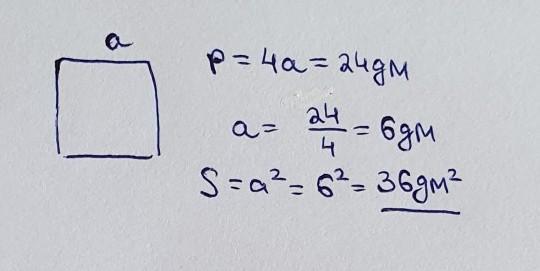 a
P = 4a = 24дм
a = 24/4 = 6дм
S = a² = 6² = 36дм²